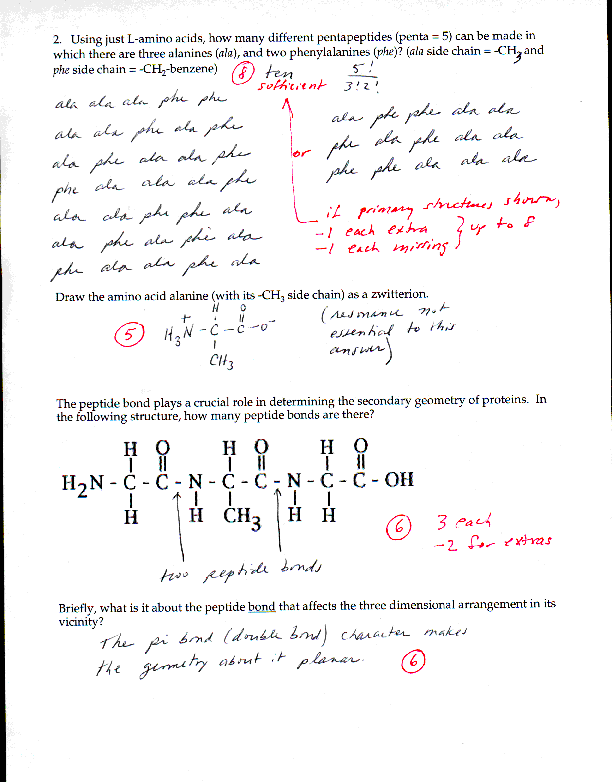 2. Using just L-amino acids, how many different pentapeptides (penta = 5) can be made in
which there are three alanines (ala), and two phenylalanines (phe)? (ala side chain = -CH3 and
phe side chain = -CH2-benzene) 8 ten 5!
sufficient 3!2!
ala ala ala phe phe
ala ala phe ala phe
ala phe ala ala phe
phe ala ala ala phe
ala ala phe phe ala
ala phe ala phe ala
phe ala ala phe ala
or
ala phe phe ala ala
phe ala phe ala ala
phe phe ala ala ala
if primary structures shown,
-1 each extra } up to 8
-1 each missing
Draw the amino acid alanine (with its -CH3 side chain) as a zwitterion.
5
H O
+ ||
H3N - C - C - O-
|
CH3
(resonance not
essential to this
answer)
The peptide bond plays a crucial role in determining the secondary geometry of proteins. In
the following structure, how many peptide bonds are there?
H O H O H O
| || | || | ||
H2N - C - C - N - C - C - N - C - C - OH
| | | | |
H H CH3 H H
two peptide bonds
6 3 each
-2 for extras
Briefly, what is it about the peptide bond that affects the three dimensional arrangement in its
vicinity?
The pi bond (double bond) character makes
the geometry about it planar. 6